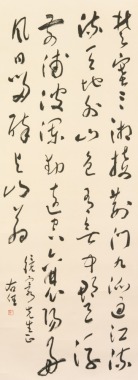 楚塞三湘接荊門九派通江
流天地外山色有無中郡邑浮
前浦波瀾動遠空襄陽好
風日留醉與山翁
先生正
右任